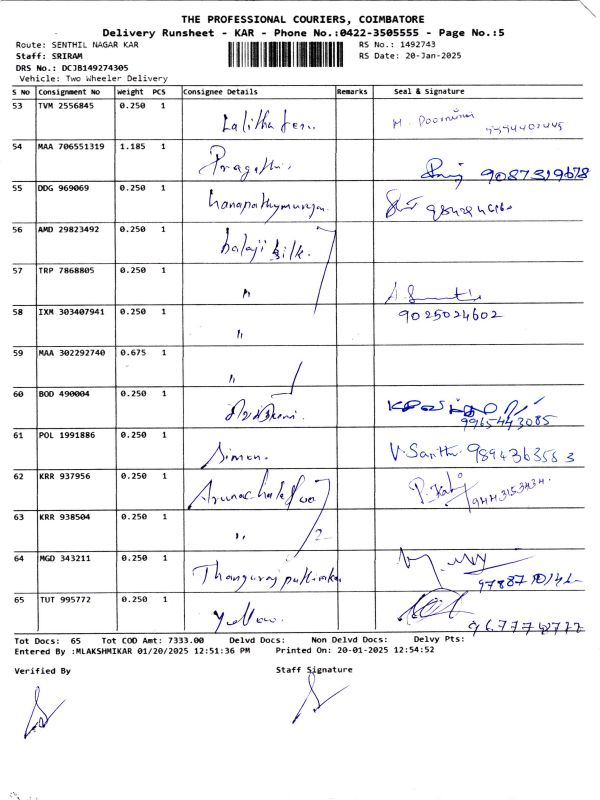 THE PROFESSIONAL COURIERS, COIMBATORE
Delivery Runsheet - KAR - Phone No.:0422-3505555 - Page No.:5
Route: SENTHIL NAGAR KAR
RS No.: 1492743
Staff: SRIRAM
RS Date: 20-Jan-2025
DRS No.: DCJB149274305
Vehicle: Two Wheeler Delivery
S No Consignment No Weight PCS Consignee Details Remarks Seal & Signature
53 TVM 2556845 0.250 1
Lalitha
M.
54 MAA 706551319 1.185 1
Pragathi.
9087319678
55 DDG 969069 0.250 1
56 AMD 29823492 0.250 1
balaji silk.
57 TRP 7868805 0.250 1
"
58 IXM 303407941 0.250 1
9025024602
"
59 MAA 302292740 0.675 1
"
60 BOD 490004 0.250 1
9965443085
61 POL 1991886 0.250 1
Simon.
V. Santhi 9894363583
62 KRR 937956 0.250 1
P.
9443153434.
63 KRR 938504 0.250 1
" 2
64 MGD 343211 0.250 1
65 TUT 995772 0.250 1
Yellow.
Tot Docs: 65 Tot COD Amt: 7333.00 Delvd Docs: Non Delvd Docs: Delvy Pts:
Entered By :MLAKSHMIKAR 01/20/2025 12:51:36 PM Printed On: 20-01-2025 12:54:52
Verified By
Staff Signature